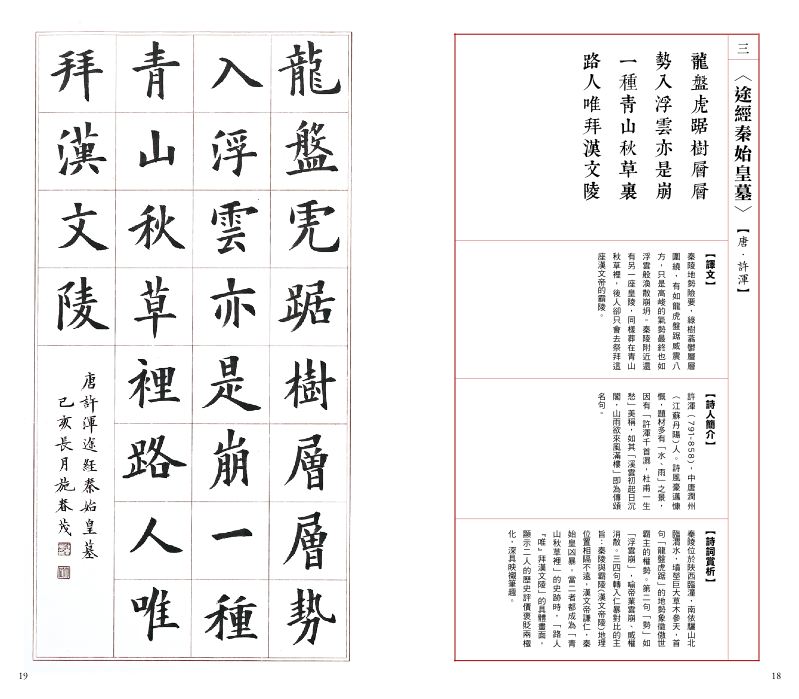 三
〈途經秦始皇墓〉【唐．許渾】
龍盤虎踞樹層層
勢入浮雲亦是崩
一種青山秋草裏
路人唯拜漢文陵
【譯文】
秦陵地勢險要，綠樹蓊鬱層層
圍繞，有如龍虎盤踞威震八
方，只是高峻的氣勢最終也如
浮雲般渙散崩坍。秦陵附近還
有另一座皇陵，同樣葬在青山
秋草裡，後人卻只會去祭拜這
座漢文帝的霸陵。
【詩人簡介】
許渾（791-858），中唐潤州
（江蘇丹陽）人。詩風豪邁慷
慨，題材多有「水、雨」之景，
因有「許渾千首濕，杜甫一生
愁」美稱，如其「溪雲初起日沉
閣，山雨欲來風滿樓」即為傳頌
名句。
【詩詞賞析】
秦陵位於陝西臨潼，南依驪山北
臨渭水，墳塋巨大草木參天，首
句「龍盤虎踞」的地勢象徵傲世
霸主的權勢。第二句「勢」如
「浮雲崩」，喻帝業雲崩、威權
消散。三四句轉入仁暴對比的主
旨：秦陵與霸陵(漢文帝陵)地理
位置相隔不遠，漢文帝謙仁，秦
始皇凶暴，當二者都成為「青
山秋草裡」的史跡時，「路人
『唯』拜漢文陵」的具體畫面，
顯示二人的歷史評價褒貶兩極
化，深具映襯筆趣。
18
龍盤虎踞樹層層勢
入浮雲亦是崩一種
青山秋草裡路人唯
拜漢文陵
唐許渾途經秦始皇墓
己亥長月施春茂
19